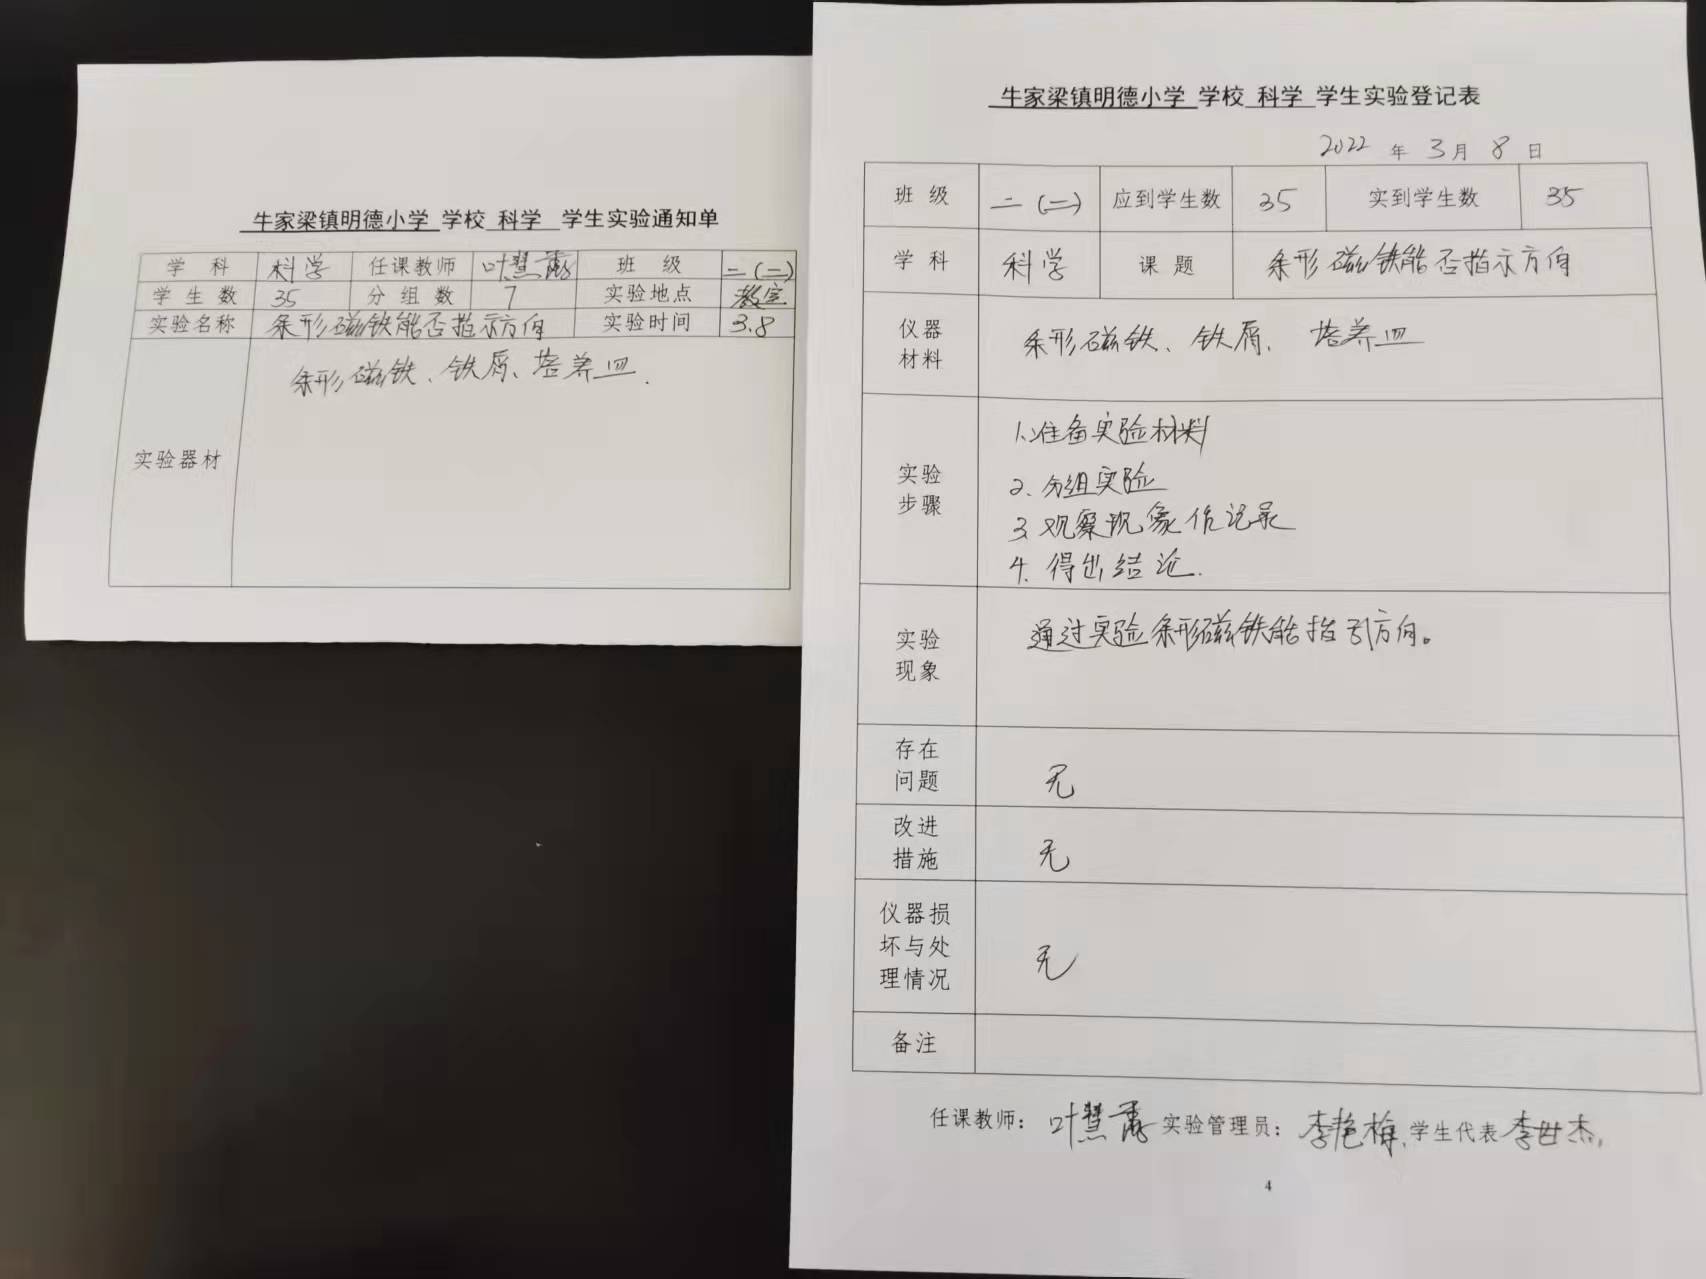 牛家梁镇明德小学 学校 科学 学生实验通知单
学 科 科学 任课教师 叶慧 班 级 二(二)
学 生 数 35 分 组 数 7 实验地点 教室
实验名称 条形磁铁能否指示方向 实验时间 3.8
实验器材 条形磁铁、铁屑、培养皿.
牛家梁镇明德小学 学校 科学 学生实验登记表
2022 年 3 月 8 日
班 级 二(二) 应到学生数 35 实到学生数 35
学 科 科学 课 题 条形磁铁能否指示方向
仪器
材料
条形磁铁、铁屑、培养皿
实验
步骤
1.准备实验材料
2.分组实验
3.观察现象作记录
4.得出结论.
实验
现象
通过实验条形磁铁能指引方向。
存在
问题
无
改进
措施
无
仪器损
坏与处
理情况
无
备注
任课教师: 叶慧 实验管理员: 李艳梅 学生代表 李世杰
4